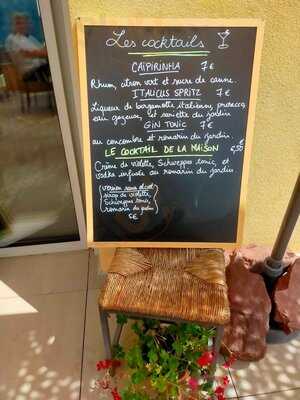 Les cocktails
CAÏPIRINHA 7€
Rhum, citron vert et sucre de canne.
ITALICUS SPRITZ 7€
Liqueur de bergamotte italienne, prosecco,
eau gazeuse, et sariette du jardin
GIN TONIC 7€
au concombre et romarin du jardin.
LE COCKTAIL DE LA MAISON 6,50€
Crème de violette, Schweppes tonic, et
vodka infusée au romarin du jardin
Version sans alcool
sirop de violette,
Schweppes tonic,
romarin du jardin
5€